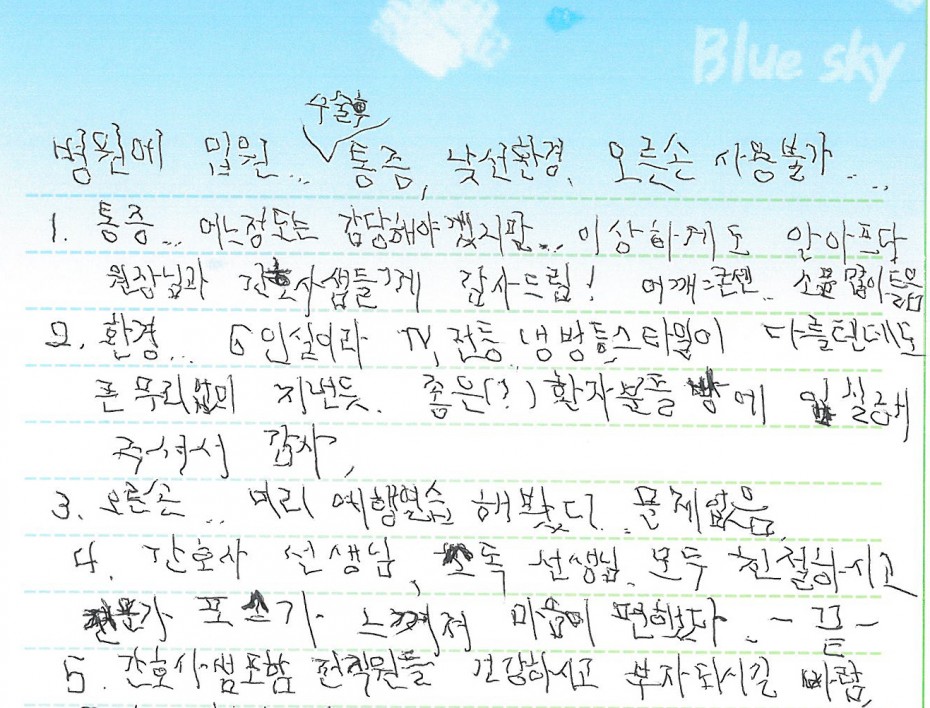 Blue sky
수술후
병원에 입원... 통증, 낯선환경, 오른손 사용불가...
1. 통증... 어느정도는 감당해야겠지만... 이상하게도 안아프다
원장님과 간호사샘들게 감사드림! 어깨=굳센.. 소문 많이
2. 환경... 6인실이라 TV, 전등, 냉방등 스타일이 다를텐데도
큰무리없이 지낸듯. 좋은(?) 환자분들 방에 입실해
주셔서 감사,
3. 오른손... 미리 예행연습 해봤다. 문제없음
4. 간호사 선생님, 소독 선생님. 모두 친절하시고
전문가 포스가 느껴져 마음이 편했다. -끝-
5. 간호사샘포함 전직원들 건강하시고 부자되시길 바람,